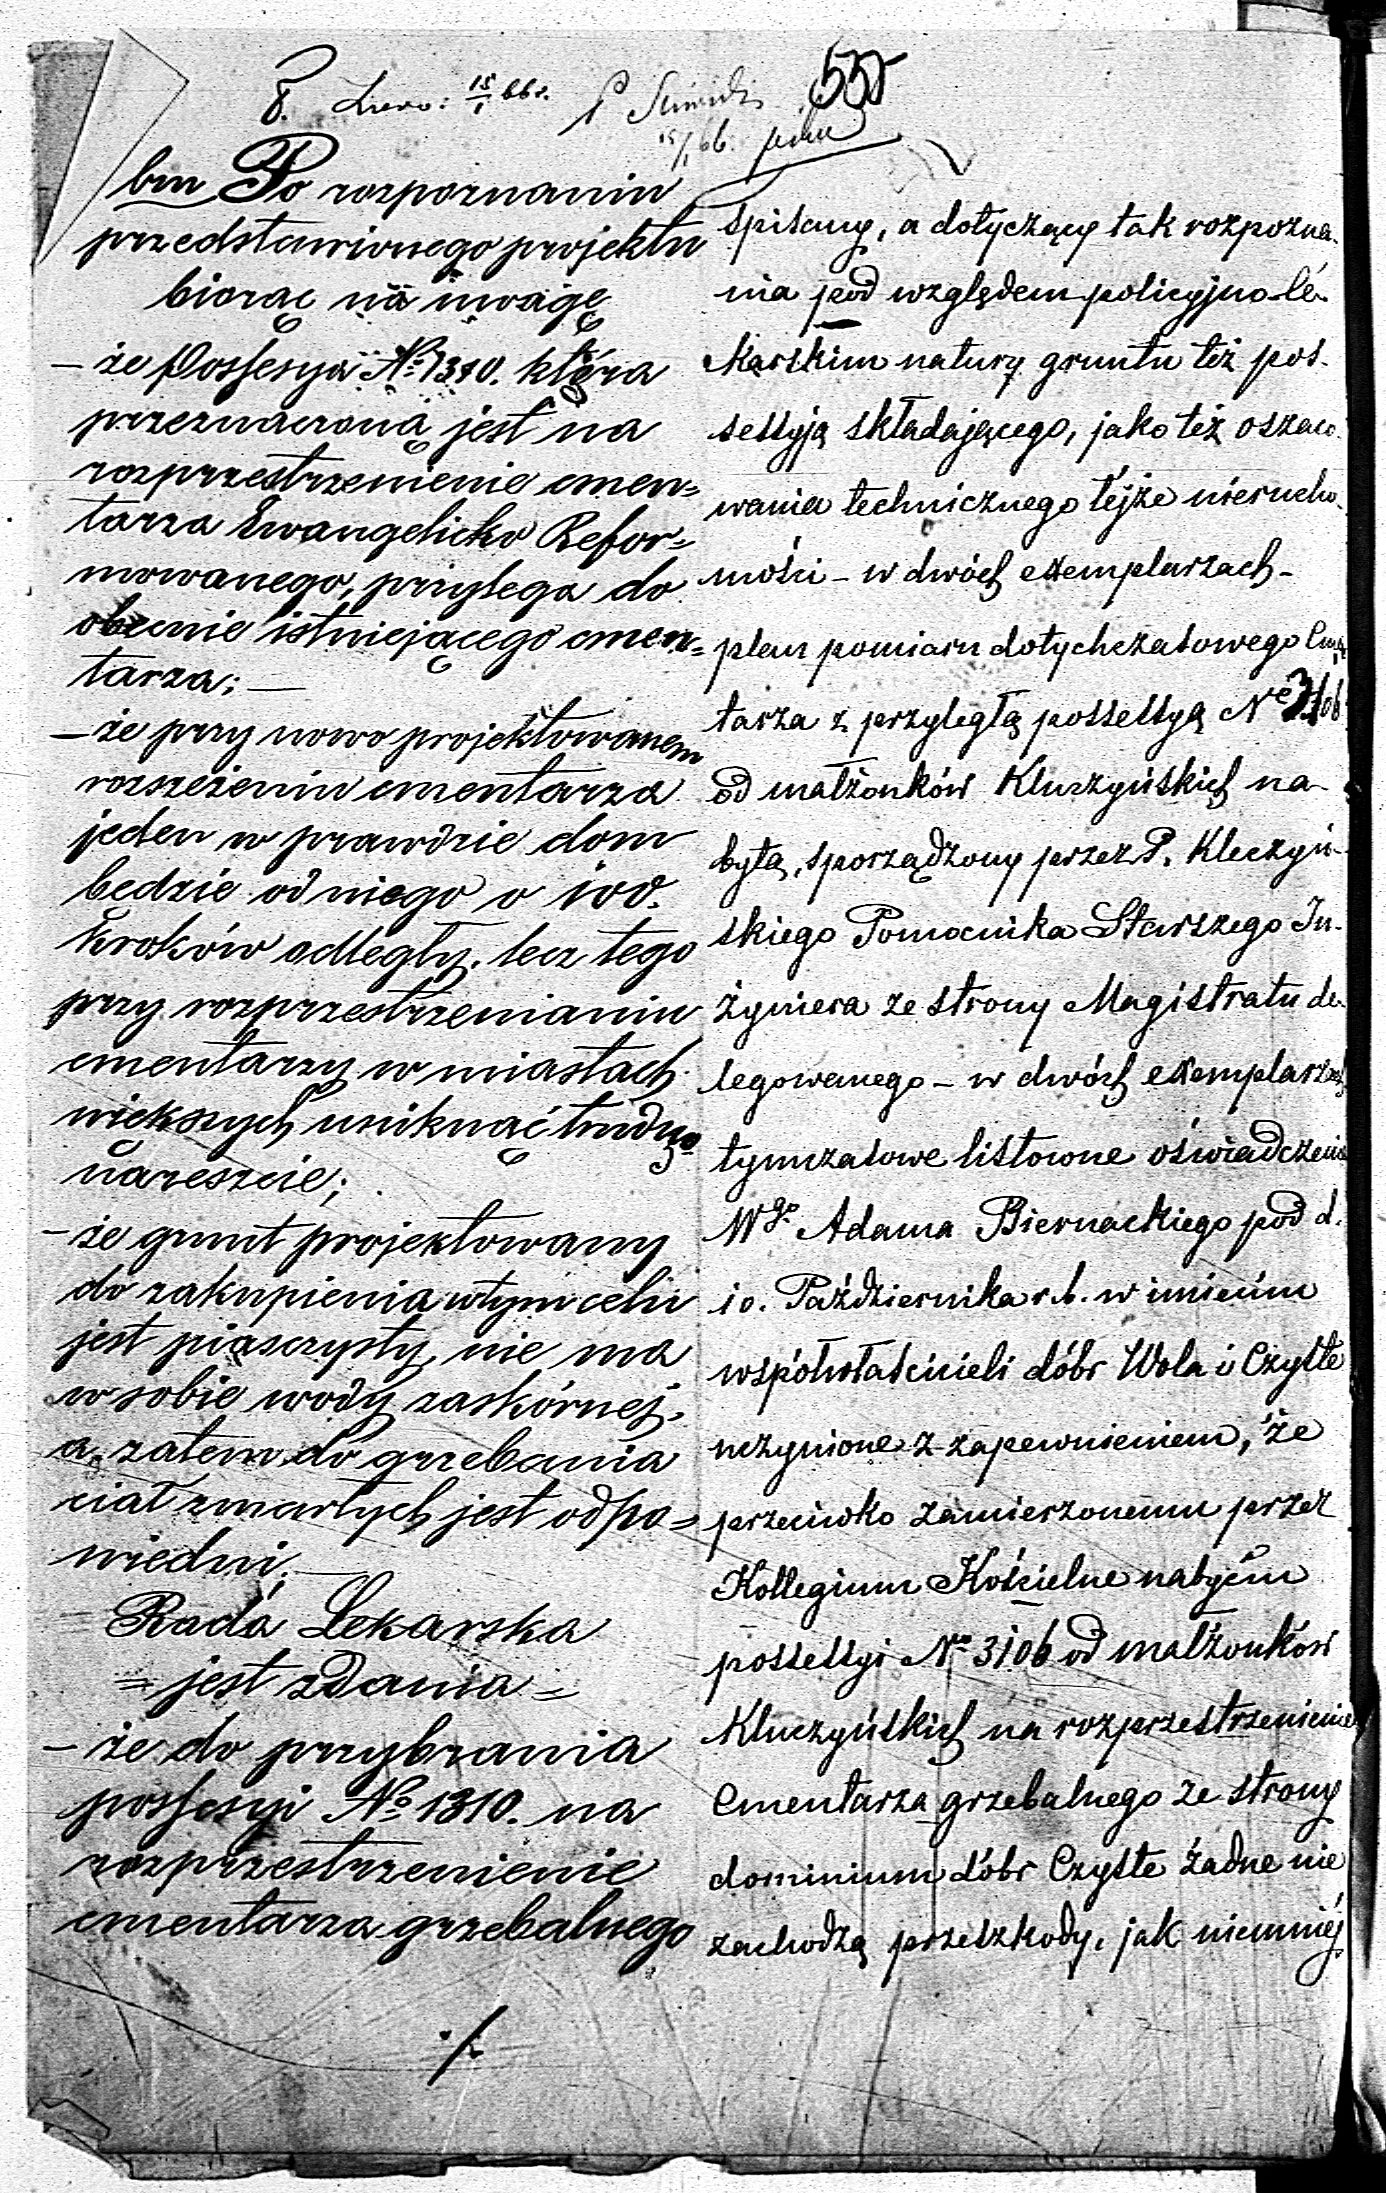 8. 15/1 66 r. 555
15/1 66.
bm Po rozpoznaniu
przedstawionego projektu
biorąc na uwagę
— że Possesya No 1310. która
przeznaczoną jest na
rozprzestrzenienie cmen=
tarza Ewangelicko Refor=
mowanego, przylega do
obecnie istniejącego cmen=
tarza; —
— że przy nowo projektowanem
rozszeżeniu cmentarza
jeden w prawdzie dom
będzie od niego o 100.
kroków odległy, lecz tego
przy rozprzestrzenianiu
cmentarzy w miastach
większych uniknąć trudno
nareszcie;
— że grunt projektowany
do zakupienia w tym celu
jest piasczysty, nie ma
w sobie wody zaskórnej,
a zatem do grzebania
ciał zmarłych jest odpo=
wiedni; —
Rada Lekarska
= jest zdania =
— że do przybrania
possesyi No 1310. na
rozprzestrzenienie
cmentarza grzebalnego
./.
spisany, a dotyczący tak rozpozna-
nia pod względem policyjno-lé-
karskim natury gruntu też pos-
sessyją składającego, jako też oszaco-
wania technicznego tejże nierucho-
mości – w dwóch exemplarzach –
plan pomiaru dotychczasowego Cmen
tarza z przyległą possessyą No 3106
od małżonków Kluczyńskich na-
bytą, sporządzony przez P. Kleczyń-
skiego Pomocnika Starszego In-
żyniera ze strony Magistratu de-
legowanego – w dwóch exemplarzach
tymczasowe listowne oświadczenie
Wgo Adama Biernackiego pod d.
10. Października r. b. w imieniu
współwłaścicieli dóbr Wola i Czyste
uczynione z zapewnieniem, że
przeciwko zamierzonemu przez
Kollegium Kościelne nabyciu
possessyi No 3106 od małżonków
Kluczyńskich na rozprzestrzenienie
Cmentarza grzebalnego ze strony
dominium dóbr Czyste żadne nie
zachodzą przeszkody, jak niemniéj